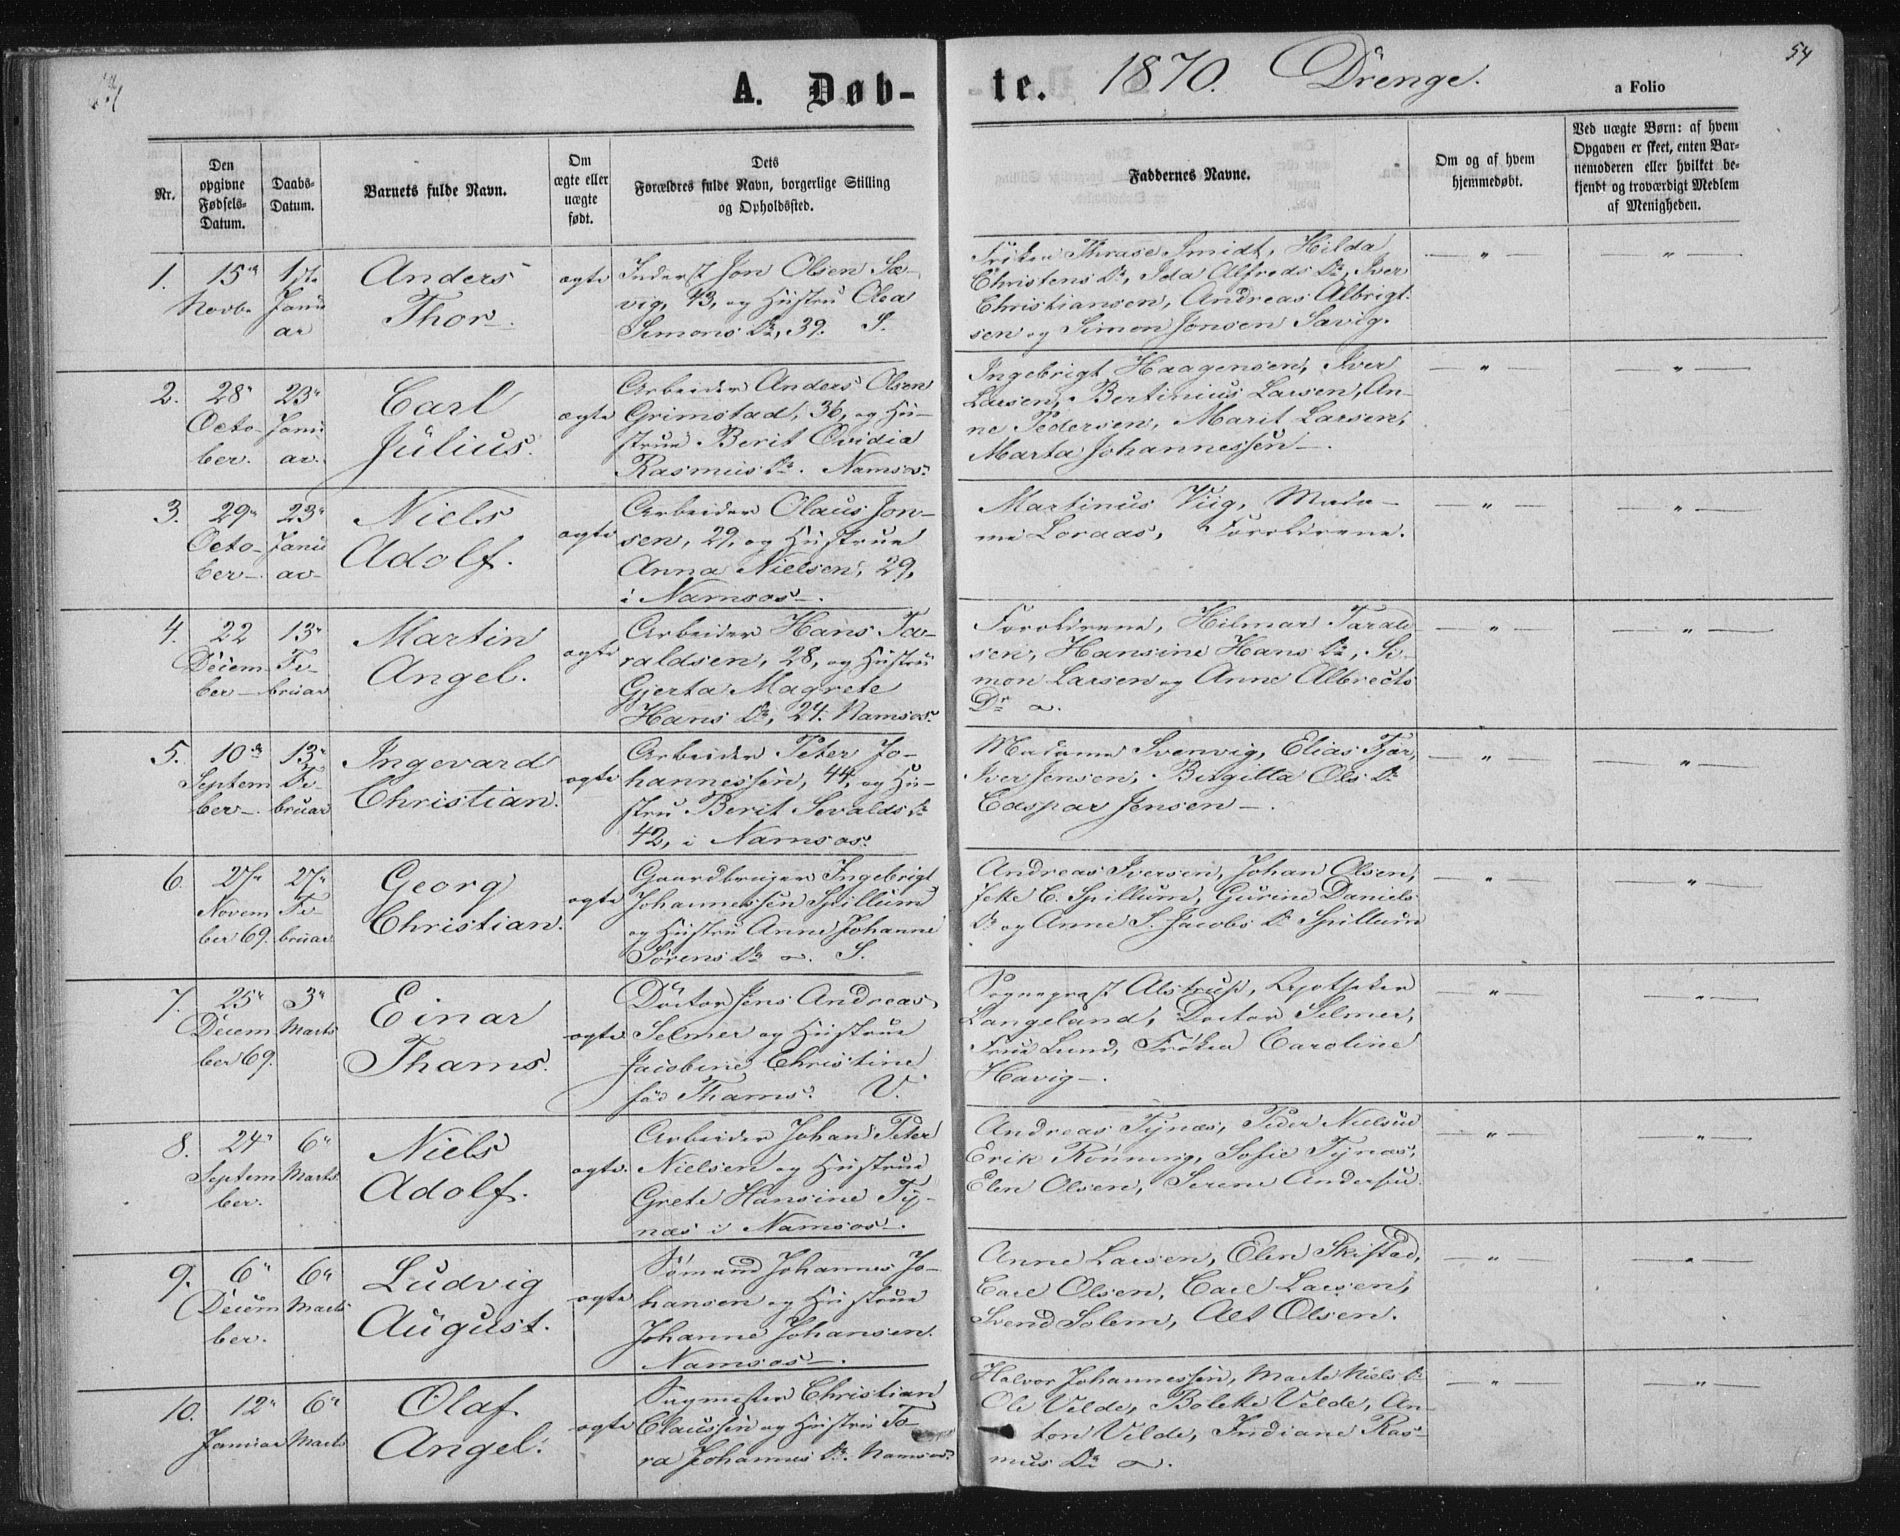 54
A. Døb-
te. 1870. Drenge.
a Folio
Nr.
Den
opgivne
Fødsels-
Datum.
Daabs-
Datum.
Barnets fulde Navn.
Om
ægte eller
uægte
født.
Dets
Forældres fulde Navn, borgerlige Stilling
og Opholdssted.
Faddernes Navne.
Om og af hvem
hjemmedøbt.
Ved uægte Børn: af hvem
Opgaven er skeet, enten Bar-
nemoderen eller hvilket be-
kjendt og troværdigt Medlem
af Menigheden.
1.
15de
Novbr.
1ste
Janu
ar
Anders
Thor.
ægte
Inderst Jon Olsen Sæ-
vig, 43, og Hustru Olea
Simons Dr., 39. S.
Frøken Thrase Smidt, Hilda
Christens Dr, Ida Alfreds Dr, Iver
Christiansen, Andreas Albrigt-
sen og Simon Jonsen Sævig.
— " —
— " —
2.
28"
Octo-
ber.
23"
Janu
ar.
Carl
Julius.
ægte
Arbeider Anders Olsen
Grimstad, 36, og Hu-
strue Berit Ovidia
Rasmus Dr. Namsos.
Ingebrigt Haagensen, Iver
Larsen, Bertinius Larsen, An-
ne Pedersen, Marit Larsen,
Marta Johannessen —.
— " —
— " —
3.
29"
Octo-
ber —
23"
Janu
ar —
Niels
Adolf.
ægte
Arbeider Olaus Jon-
sen, 29, og Hustrue
Anna Nielsen, 29,
i Namsos —.
Martinus Viig, Mada-
me Loraas, Forældrene.
— " —
— " —
4.
22
Decem
ber —
13"
Fe-
bruar
Martin
Angel.
ægte
Arbeider Hans Ta-
raldsen, 28, og Hustru
Gjerta Magrete
Hans Dr, 24. Namsos.
Forældrene, Hilmar Tarald
sen, Hansine Hans Dr, Si-
mon Larsen og Anne Albrects
Dr
— " —
— " —
5.
10de
Septem
ber —.
13"
Fe-
bruar
Ingevard
Christian.
ægte
Arbeider Peter Jo-
hannessen, 44, og Hu-
stru Berit Sevalds Dr
42, i Namsos.
Madame Svenvig, Elias Fjær,
Iver Jensen, Birgitta Ols Dr
Caspar Jensen —.
— " —
— " —
6.
27"
Novem
ber 69.
27"
Fe-
bruar
Georg
Christian.
ægte
Gaardbruger Ingebrigt
Johannessen Spillum
og Hustru Anne Johanne
Sørens Dr S.
Andreas Iversen, Johan Olsen,
Jette C. Spillum, Gurine Daniels
Dr og Anne S. Jacobs Dr Spillum
— " —
— " —
7.
25"
Decem
ber 69.
3"
Marts
Einar
Thams.
ægte
Doctor Jens Andreas
Selmer og Hustrue
Jacobine Christine
fød Thams. V.
Sogneprest Alstrup, Apotheker
Langeland, Doctor Selmer,
Frue Lund, Frøken Caroline
Havig —.
— " —
— " —
8.
24"
Septem
ber.
6"
Marts
Niels
Adolf.
ægte.
Arbeider Johan Peter
Nielsen og Hustrue
Grete Hansine Ty-
næs i Namsos —.
Andreas Tynæs, Peder Nielsen
Erik Rønning, Sofie Tynæs,
Elen Olsen, Serene Andersen
— " —
— " —
9.
6"
Decem
ber.
6"
Marts
Ludvig
August.
ægte
Sømand Johannes Jo-
hansen og Hustrue
Johanne Johansen.
Namsos —.
Anne Larsen, Elen Skistad,
Carl Olsen, Carl Larsen,
Svend Solem, Alet Olsen.
— " —
— " —
10.
12"
Januar
6"
Marts
Olaf
Angel.
ægte
Sagmester Christian
Claussen og Hustru To-
ra Johannes Dr. Namsos.
Halvor Johannessen, Marte Niels Dr
Ole Velde, Bolette Velde, An-
ton Velde, Indiane Ras-
mus Dr
— " —
— " —